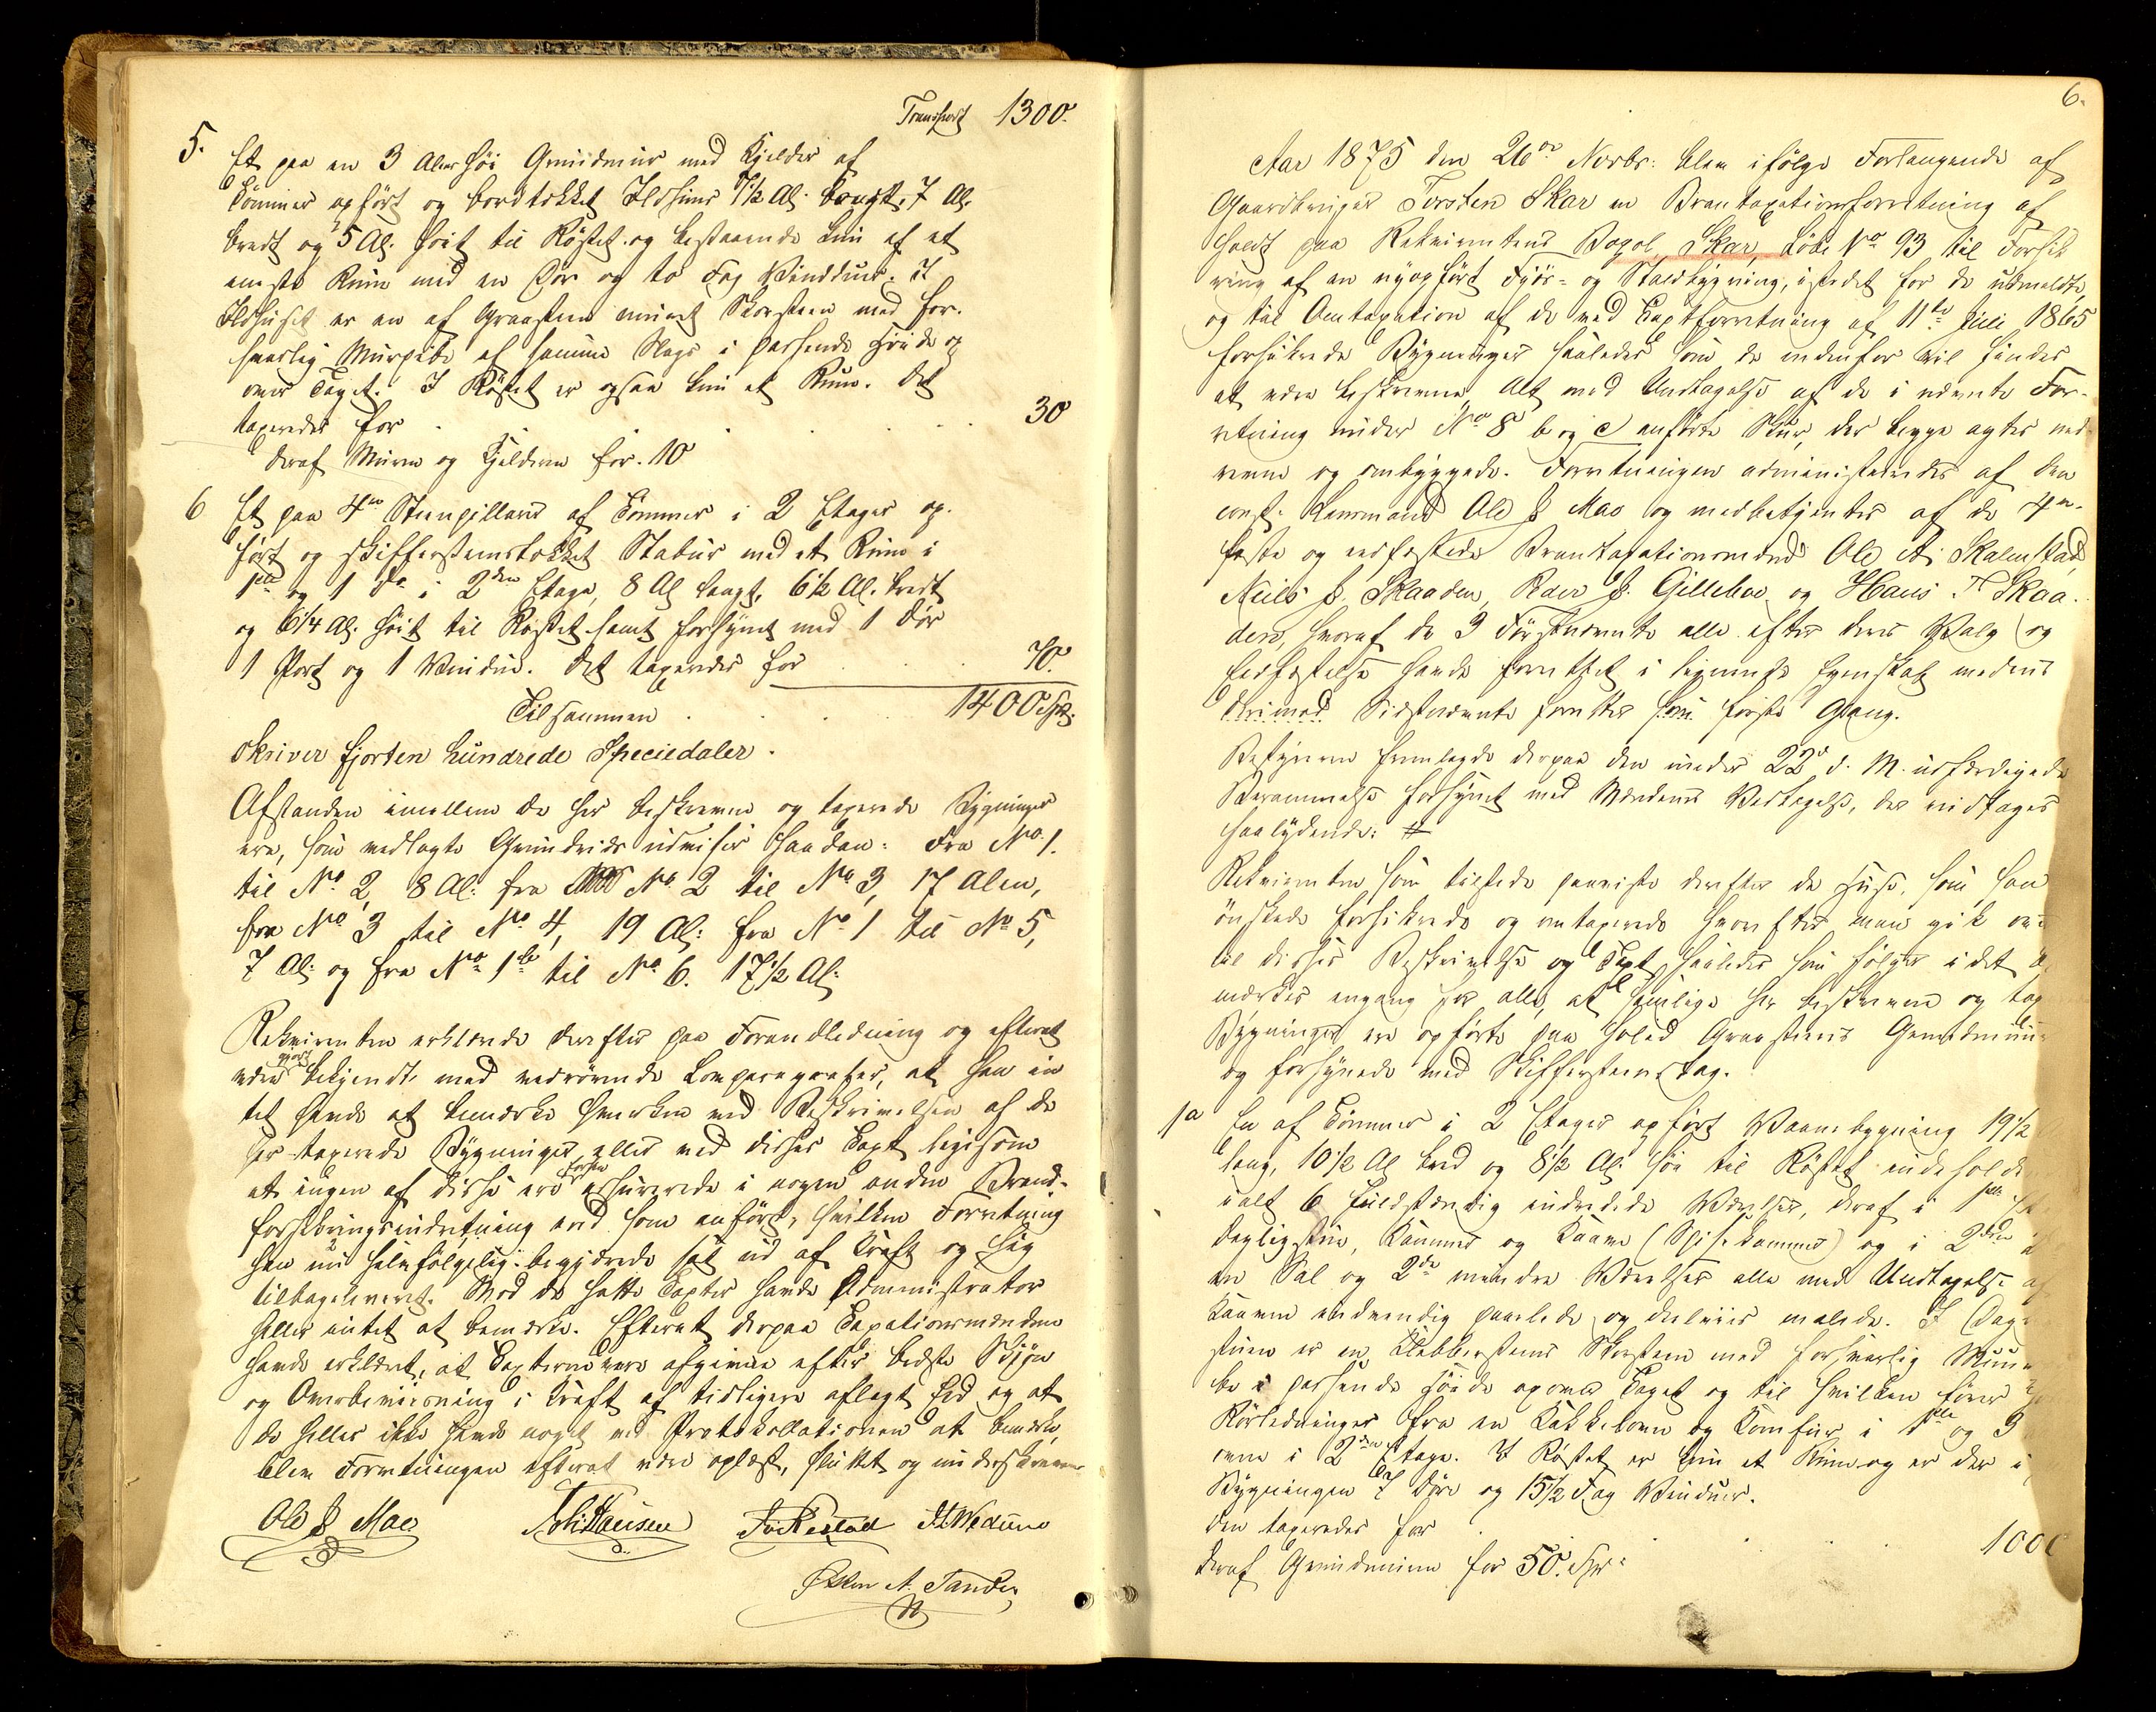 Transport 1300.
5. Et paa en 3 Alen høi Grundmur med Kjelder af
Tømmer opført og bordtækket Ildhuus 7 1/2 Al. langt, 7 Al.
bredt og 5 Al. høit til Røstet og bestaaende kun af et
eneste Rum med en Dør og to Fag Vinduer. I
Ildhuset er en af Graasteen muret Skorsteen med for-
svarlig Murpibe af samme Slags i passende Høide op
over Taget. I Røstet er ogsaa kun et Rum. Det
taxeredes for . . . . . 30
deraf Muren og Kjelderen for 10
6 Et paa 4re Steenpillarer af Tømmer i 2 Etager op-
ført og skiffersteenstækket Stabur med et Rum i
1ste og 1 do i 2den Etage, 8 Al langt, 6 1/2 Al. bredt
og 6 1/4 Al. høit til Røstet samt forsynet med 1 Dør
1 Port og 1 Vindue. Det taxeredes for . . . 70.
Tilsammen . . . . 1400 Spd.
skriver fjorten hundrede Speciedaler.
Afstanden imellem de her beskrevne og taxerede Bygninger
ere, som vedlagte Grundrids udviser saadan: Fra No 1.
til No 2, 8 Al: fra No 2 til No 3, 17 Alen,
fra No 3 til No 4, 19 Al: fra No 1 til No 5,
7 Al: og fra No 1 b til No 6. 17 1/2 Al:
Rekvirenten erklærede derefter paa Foranledning og efterat
være gjort bekjendt med vedrørende Lovparagrafer, at han in-
tet havde at bemærke hverken ved Beskrivelsen af de
her taxerede Bygninger eller ved disses Taxt ligesom
at ingen af disse ere forhen assurerede i nogen anden Brand-
forsikringsindretning end som anført, hvilken Forretning
han nu selvfølgelig begjærede sat ud af Kraft og sig
tilbageleveret. Mod de satte Taxter havde Administrator
heller intet at bemærke. Efterat derpaa Taxationsmændene
havde erklæret, at Taxterne vare afgivne efter bedste Skjøn
og Overbeviisning i Kraft af tidligere aflagt Eed og at
de heller ikke havde noget ved Protokollationen at bemærke,
blev Forretningen efterat være oplæst, sluttet og underskreven
Ole J Moe
6.
Aar 1875 den 26de Novbr: blev ifølge Forlangende af
Gaardbruger Torsten Skar en Brandtaxationsforretning af-
holdt paa Rekvirentens Bopæl Skar, Løbe No 93 til Forsik-
ring af en nyopført Fjøs- og Staldbygning, istedet for de udmeldte,
og til Omtaxation af de ved Taxtforretning af 11te Juli 1865
forsikrede Bygninger saaledes som de nedenfor vil findes
at være beskrevne, Alt med Undtagelse af de i nævnte For-
retning under No 8 b og c anførte Skur, der begge agtes ned-
revne og ombyggede. Forretningen administreredes af den
const. Lensmand Ole J Moe og medbetjentes af de 4re
faste og eedfæstede Brandtaxationsmænd Ole A. Skalmstad,
Niels J. Skaaden, Peder J. Gillebo og Hans T Skaa-
den, hvoraf de 3 Førstnævnte alle efter deres Valg og
Eedfæstelse havde forrettet i lignende Egenskab medens
derimod Sidstnævnte forretter som første Gang.
Bestyreren fremlagde derpaa den under 22de d. M. udfærdigede
Berammelse forsynet med Mændenes Vedtagelse, der indtages
saalydende: #
Rekvirenten som tilstede paaviste derefter de Huse, som han
ønskede forsikrede og omtaxerede hvorefter man gik over
til disses Beskrivelse og Taxt saaledes som følger idet
mærkes engang for alle, at samtlige her beskrevne og tax
Bygninger ere opførte paa solid Graasteens Grundmuur
og forsynede med Skiffersteenstag.
1a En af Tømmer i 2 Etager opført Vaanebygning 19 1/2
lang, 10 1/2 Al bred og 8 1/2 Al: høi til Røstet indeholde
ialt 6 fuldstændig indredede Værelser, deraf i 1ste
Dagligstue, Kammer og Kaave (Spisekammer) og i 2den
en Sal og 2de mindre Værelser alle med Undtagelse af
Kaaven indvendig paanelede og deelviis malede. I Dag-
stuen er en Klebbersteens Skorsteen med forsvarlig Muur-
be i passende Høide op over Taget og til hvilken fører
Rørledninger fra en Kakkelovn og Komfur i 1ste og 3
ovne i 2den Etage. I Røstet er kun et Rum og er der i
Bygningen 7 Døre og 15 1/2 Fag Vinduer.
Den taxeredes for . . . . 1000
deraf Grundmuren for 50. Spd: